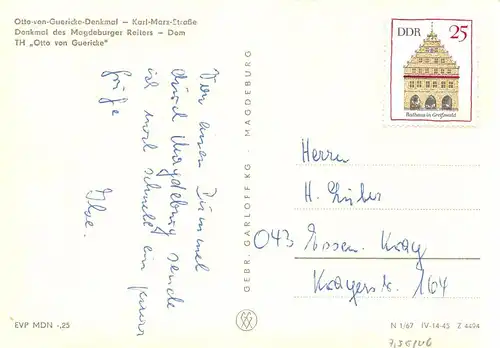 Otto-von-Guericke-Denkmal – Karl-Marx-Straße
Denkmal des Magdeburger Reiters – Dom
TH „Otto von Guericke"
DDR 25
Rathaus in Greifswald
Von einem Bummel
durch Magdeburg sende
ich noch schnell ein paar
Grüße
Ilse.
GEBR. GARLOFF KG · MAGDEBURG
Herrn
H. Huber
043 Essen-Kray
Krayerstr. 164
EVP MDN -,25
N 1/67 IV-14-45 Z 4494